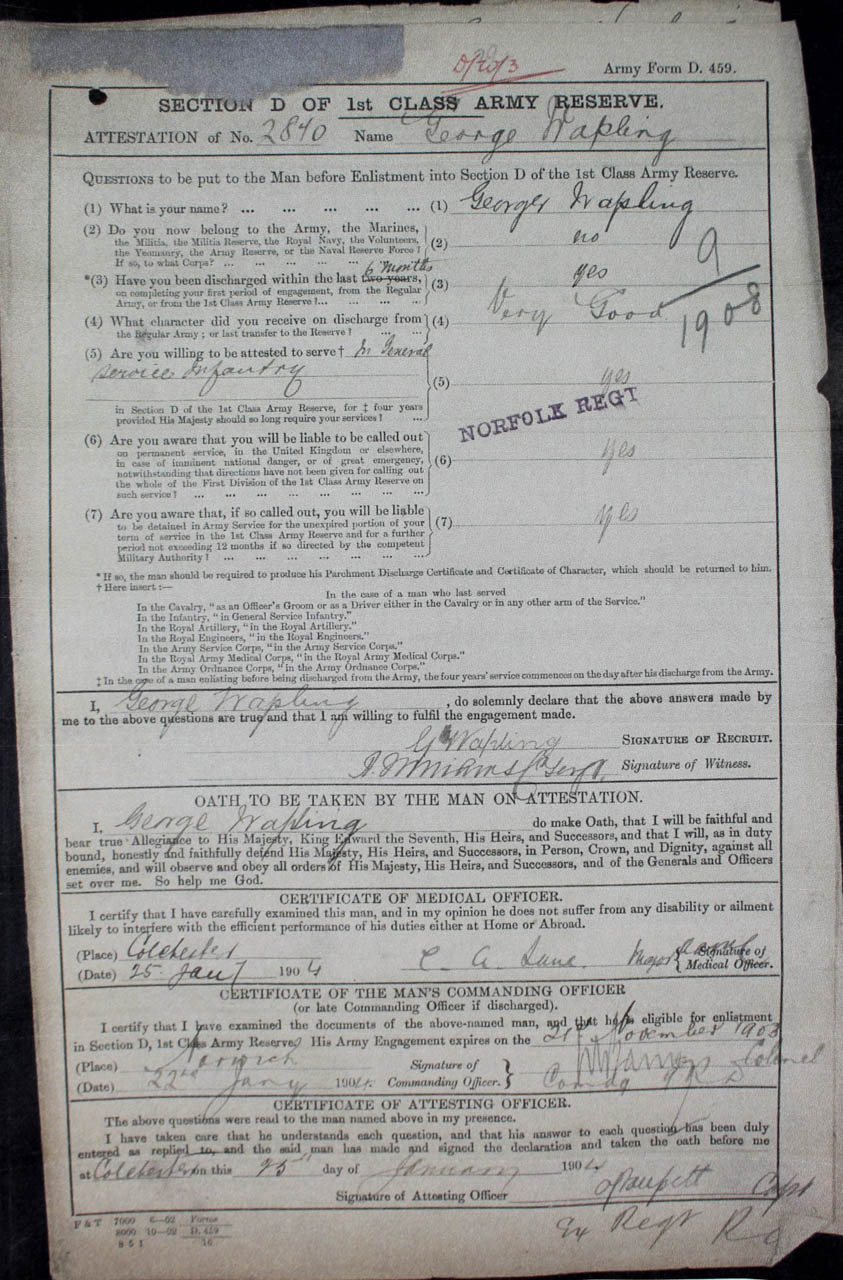 D/20/3
Army Form D. 459.
SECTION D OF 1st CLASS ARMY RESERVE.
ATTESTATION of No. 2840 Name George Wapling
QUESTIONS to be put to the Man before Enlistment into Section D of the 1st Class Army Reserve.
(1) What is your name? ... ... ... ... ... (1) George Wapling
(2) Do you now belong to the Army, the Marines,
the Militia, the Militia Reserve, the Royal Navy, the Volunteers,
the Yeomanry, the Army Reserve, or the Naval Reserve Force?
If so, to what Corps? ... ... ... ... ... (2) no
6 months
*(3) Have you been discharged within the last two years,
on completing your first period of engagement, from the Regular
Army, or from the 1st Class Army Reserve? ... ... ... ... (3) yes
9
1908
(4) What character did you receive on discharge from
the Regular Army; or last transfer to the Reserve? ... ... (4) Very Good
(5) Are you willing to be attested to serve† In General
service Infantry
(5) yes
in Section D of the 1st Class Army Reserve, for ‡ four years
provided His Majesty should so long require your services? ...
NORFOLK REGT
(6) Are you aware that you will be liable to be called out
on permanent service, in the United Kingdom or elsewhere,
in case of imminent national danger, or of great emergency,
notwithstanding that directions have not been given for calling out
the whole of the First Division of the 1st Class Army Reserve on
such service? ... ... ... ... ... ... ... (6) yes
(7) Are you aware that, if so called out, you will be liable
to be detained in Army Service for the unexpired portion of your
term of service in the 1st Class Army Reserve and for a further
period not exceeding 12 months if so directed by the competent
Military Authority? ... ... ... ... ... ... (7) yes
* If so, the man should be required to produce his Parchment Discharge Certificate and Certificate of Character, which should be returned to him.
† Here insert:—
In the case of a man who last served
In the Cavalry, "as an Officer's Groom or as a Driver either in the Cavalry or in any other arm of the Service."
In the Infantry, "in General Service Infantry."
In the Royal Artillery, "in the Royal Artillery."
In the Royal Engineers, "in the Royal Engineers."
In the Army Service Corps, "in the Army Service Corps."
In the Royal Army Medical Corps, "in the Royal Army Medical Corps."
In the Army Ordnance Corps, "in the Army Ordnance Corps."
‡ In the case of a man enlisting before being discharged from the Army, the four years' service commences on the day after his discharge from the Army.
I, George Wapling, do solemnly declare that the above answers made by
me to the above questions are true and that I am willing to fulfil the engagement made.
G Wapling SIGNATURE OF RECRUIT.
Signature of Witness.
OATH TO BE TAKEN BY THE MAN ON ATTESTATION.
I, George Wapling do make Oath, that I will be faithful and
bear true Allegiance to His Majesty, King Edward the Seventh, His Heirs, and Successors, and that I will, as in duty
bound, honestly and faithfully defend His Majesty, His Heirs, and Successors, in Person, Crown, and Dignity, against all
enemies, and will observe and obey all orders of His Majesty, His Heirs, and Successors, and of the Generals and Officers
set over me. So help me God.
CERTIFICATE OF MEDICAL OFFICER.
I certify that I have carefully examined this man, and in my opinion he does not suffer from any disability or ailment
likely to interfere with the efficient performance of his duties either at Home or Abroad.
(Place) Colchester
(Date) 25 Jany 1904 C. A. Lane. Major Signature of
Medical Officer.
CERTIFICATE OF THE MAN'S COMMANDING OFFICER
(or late Commanding Officer if discharged).
I certify that I have examined the documents of the above-named man, and that he is eligible for enlistment
in Section D, 1st Class Army Reserve. His Army Engagement expires on the 21st November 1903
(Place) Norwich Signature of
(Date) 22nd Jany 1904. Commanding Officer. Colonel
Comdg
CERTIFICATE OF ATTESTING OFFICER.
The above questions were read to the man named above in my presence.
I have taken care that he understands each question, and that his answer to each question has been duly
entered as replied to, and the said man has made and signed the declaration and taken the oath before me
at Colchester on this 25th day of January 1904
Signature of Attesting Officer Capt
Regt
F & T 7000 6—02 Forms
8000 10—02 D. 459
8 5 1 16